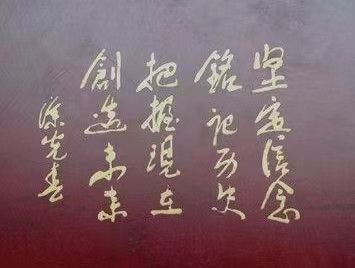 坚定信念
銘記历史
把握現在
創造未来